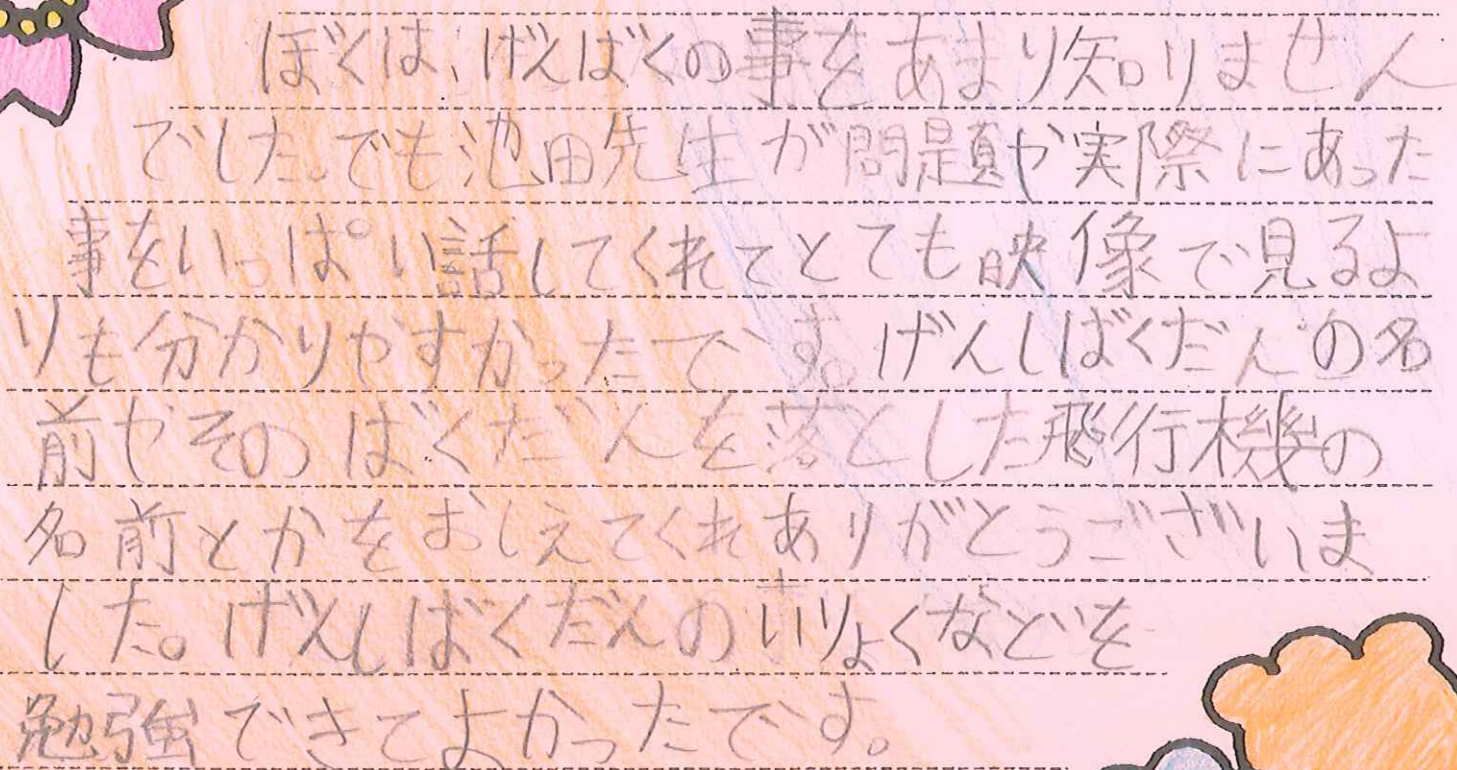 ぼくは、げんばくの事をあまり知りません
でした。でも池田先生が問題や実際にあった
事をいっぱい話してくれてとても映像で見るよ
りも分かりやすかったです。げんしばくだんの名
前やそのばくだんを落とした飛行機の
名前とかをおしえてくれありがとうございま
した。げんしばくだんのいりょくなどを
勉強できてよかったです。